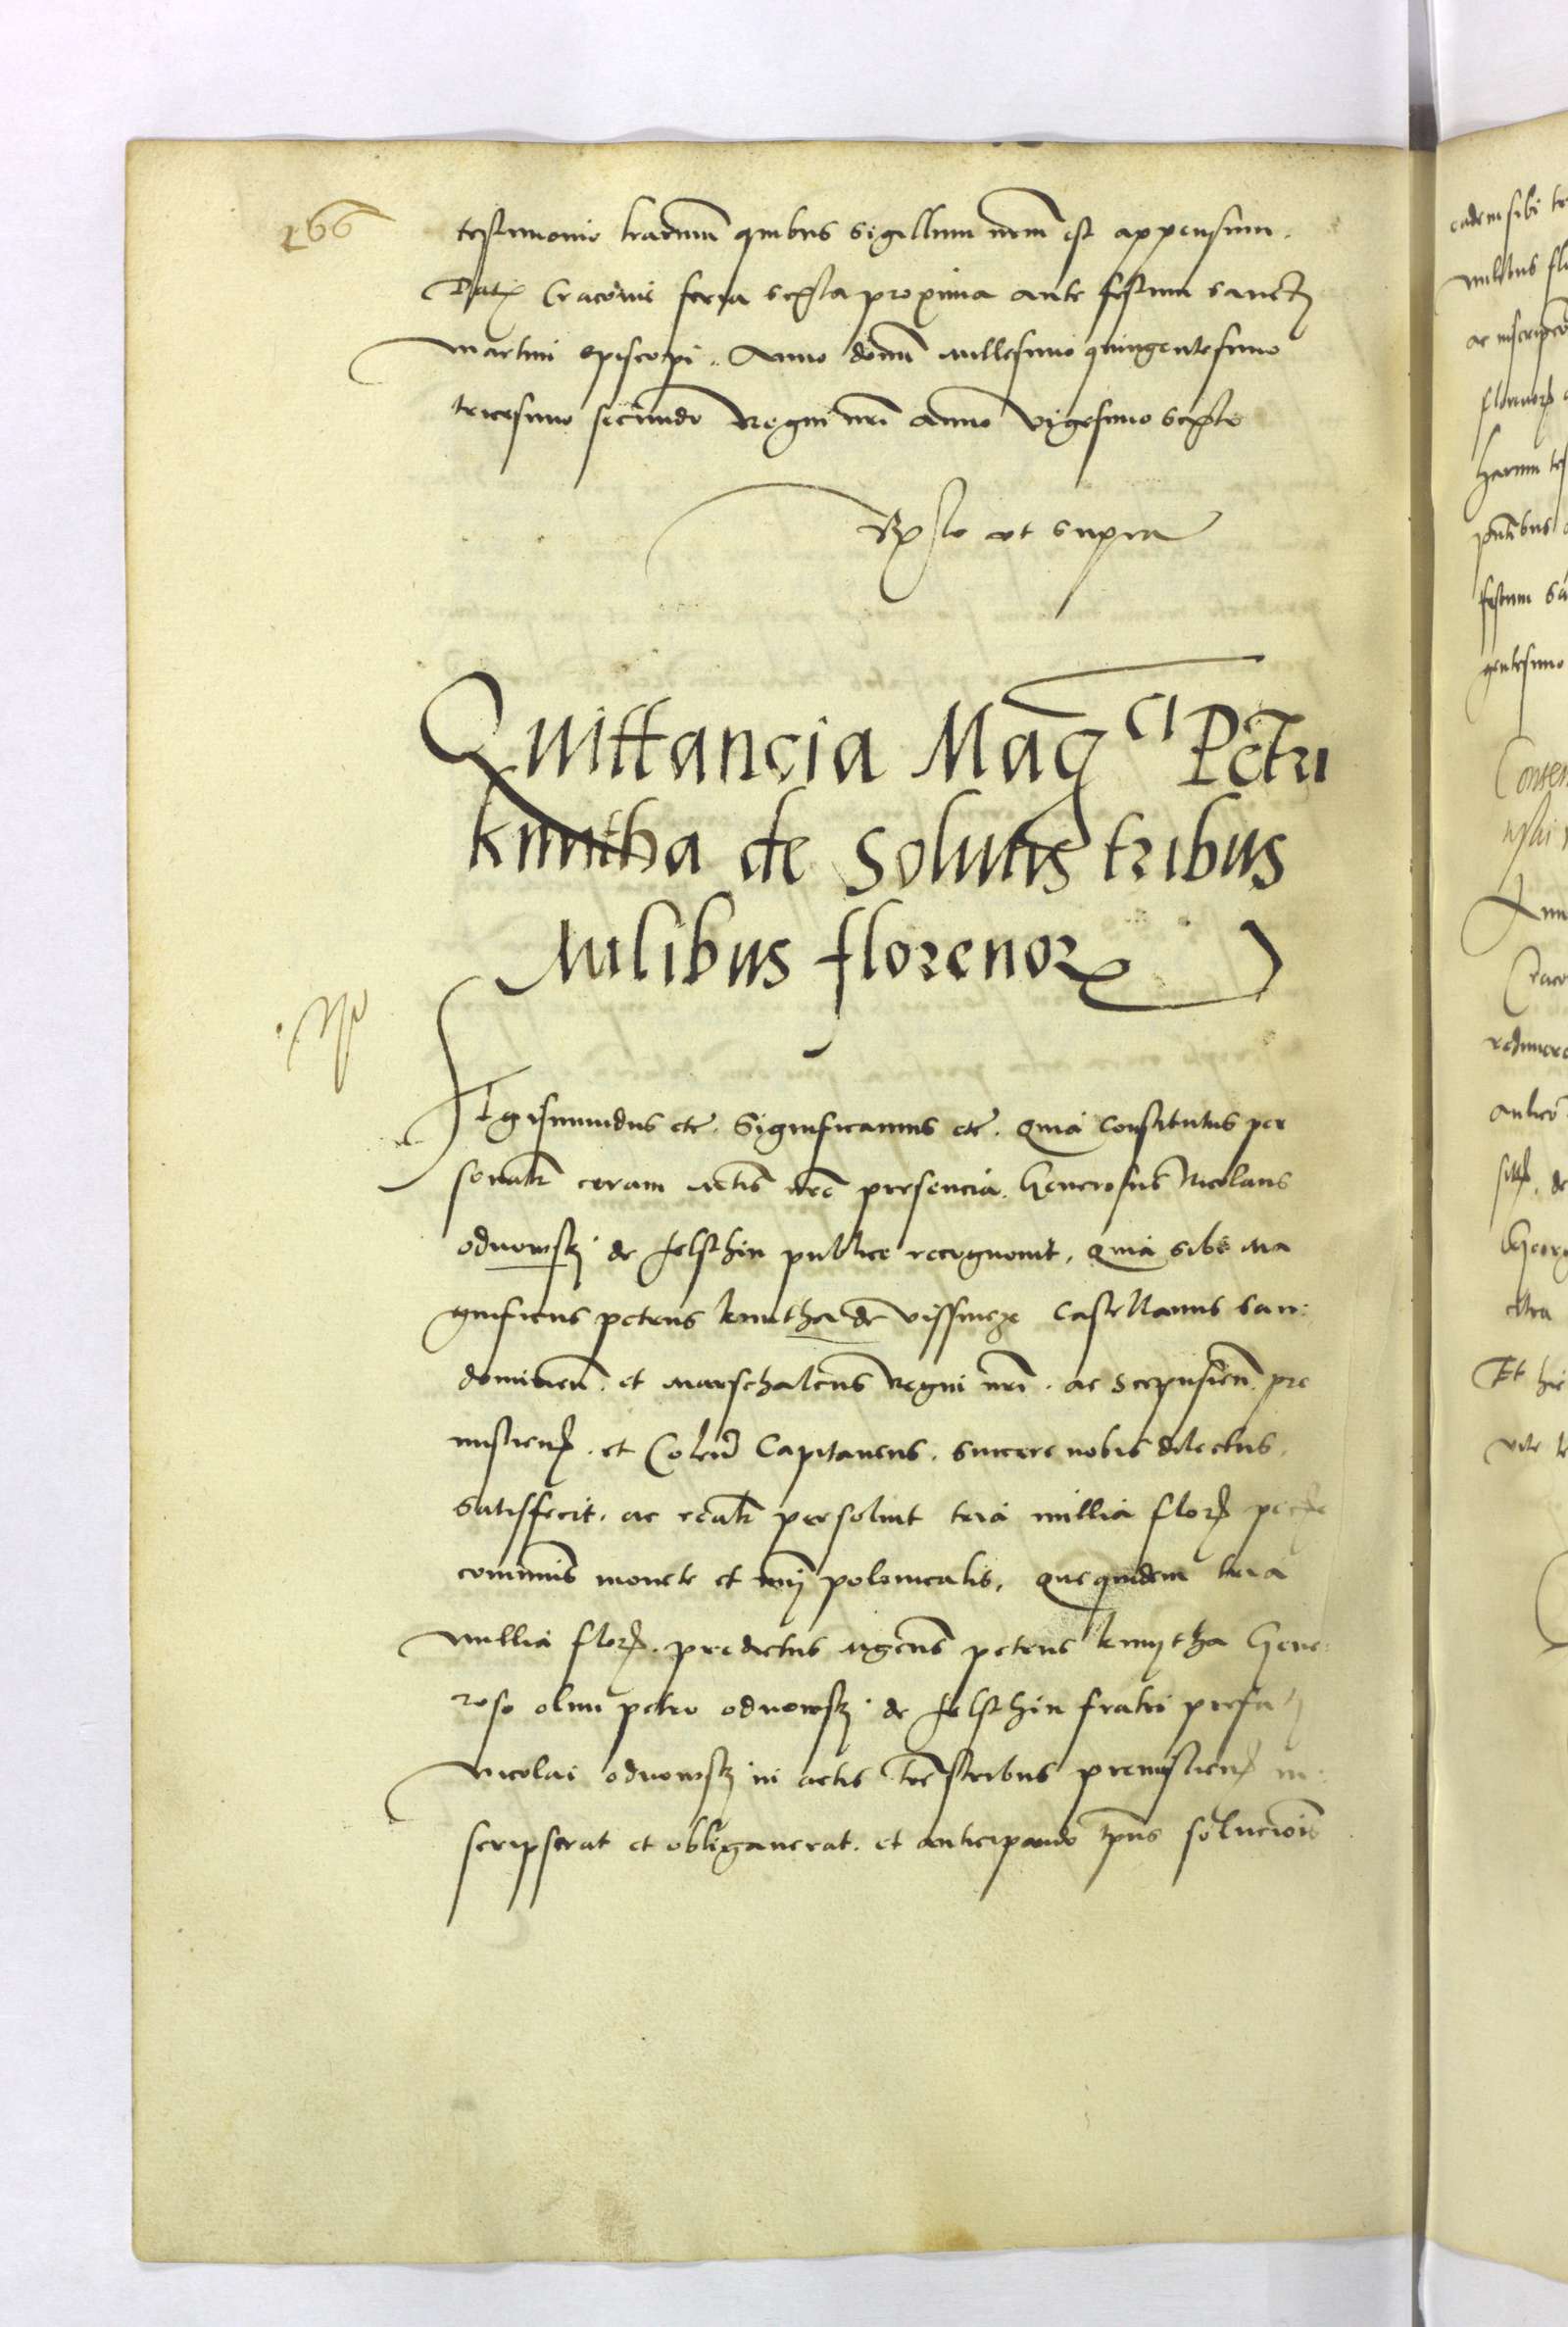 166
testimonio lrarum quibus sigillum nrm est appensum.
Dat Cracovie feria sexta proxima ante festum sancti
Martini episcopi. Anno domi millesimo quingentesimo
tricesimo secundo Regni nri anno vigesimo sexto
Rlo ut supra
Quittancia Magci Petri
kmitha de solutis tribus
Milibus florenor
Sigismundus etc. Significamus etc. Quia constitutus per
sonalr coram Actis nre presencia. Generosus Nicolaus
odnowsky de felsthin publice recognovit, quia sibi Ma
gnificus petrus kmitha de vissnicze Castellanus san:
domirien. et Marschalcus Regni nri. ac Scepusien. pre
mislien. et Colen Capitaneus. sincere nobis dilectus.
satisfecit. ac realr persolvit tria millia flor pecunie
communis monete et nui polonicalis. que quidem tria
millia flor. predictus Mgcus petrus kmytha Gene:
roso olim petro odnowsky de felsthin fratri prefati
Nicolai odnowsky in actis trestribus premislien in:
scripserat et obligaverat. et anticipando tpus soluciois
eadem sibi
millibus
ac inscripcio
florenor
harum
pntibus
festum
gentesimo
redimere
Et hic